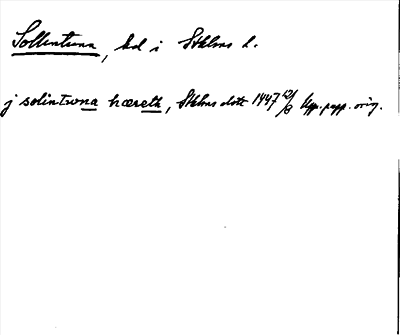 Sollentuna, hd i Sthlms l.
j solintwna hæreth, Sthlms slott 1447 12/8 papp. orig.